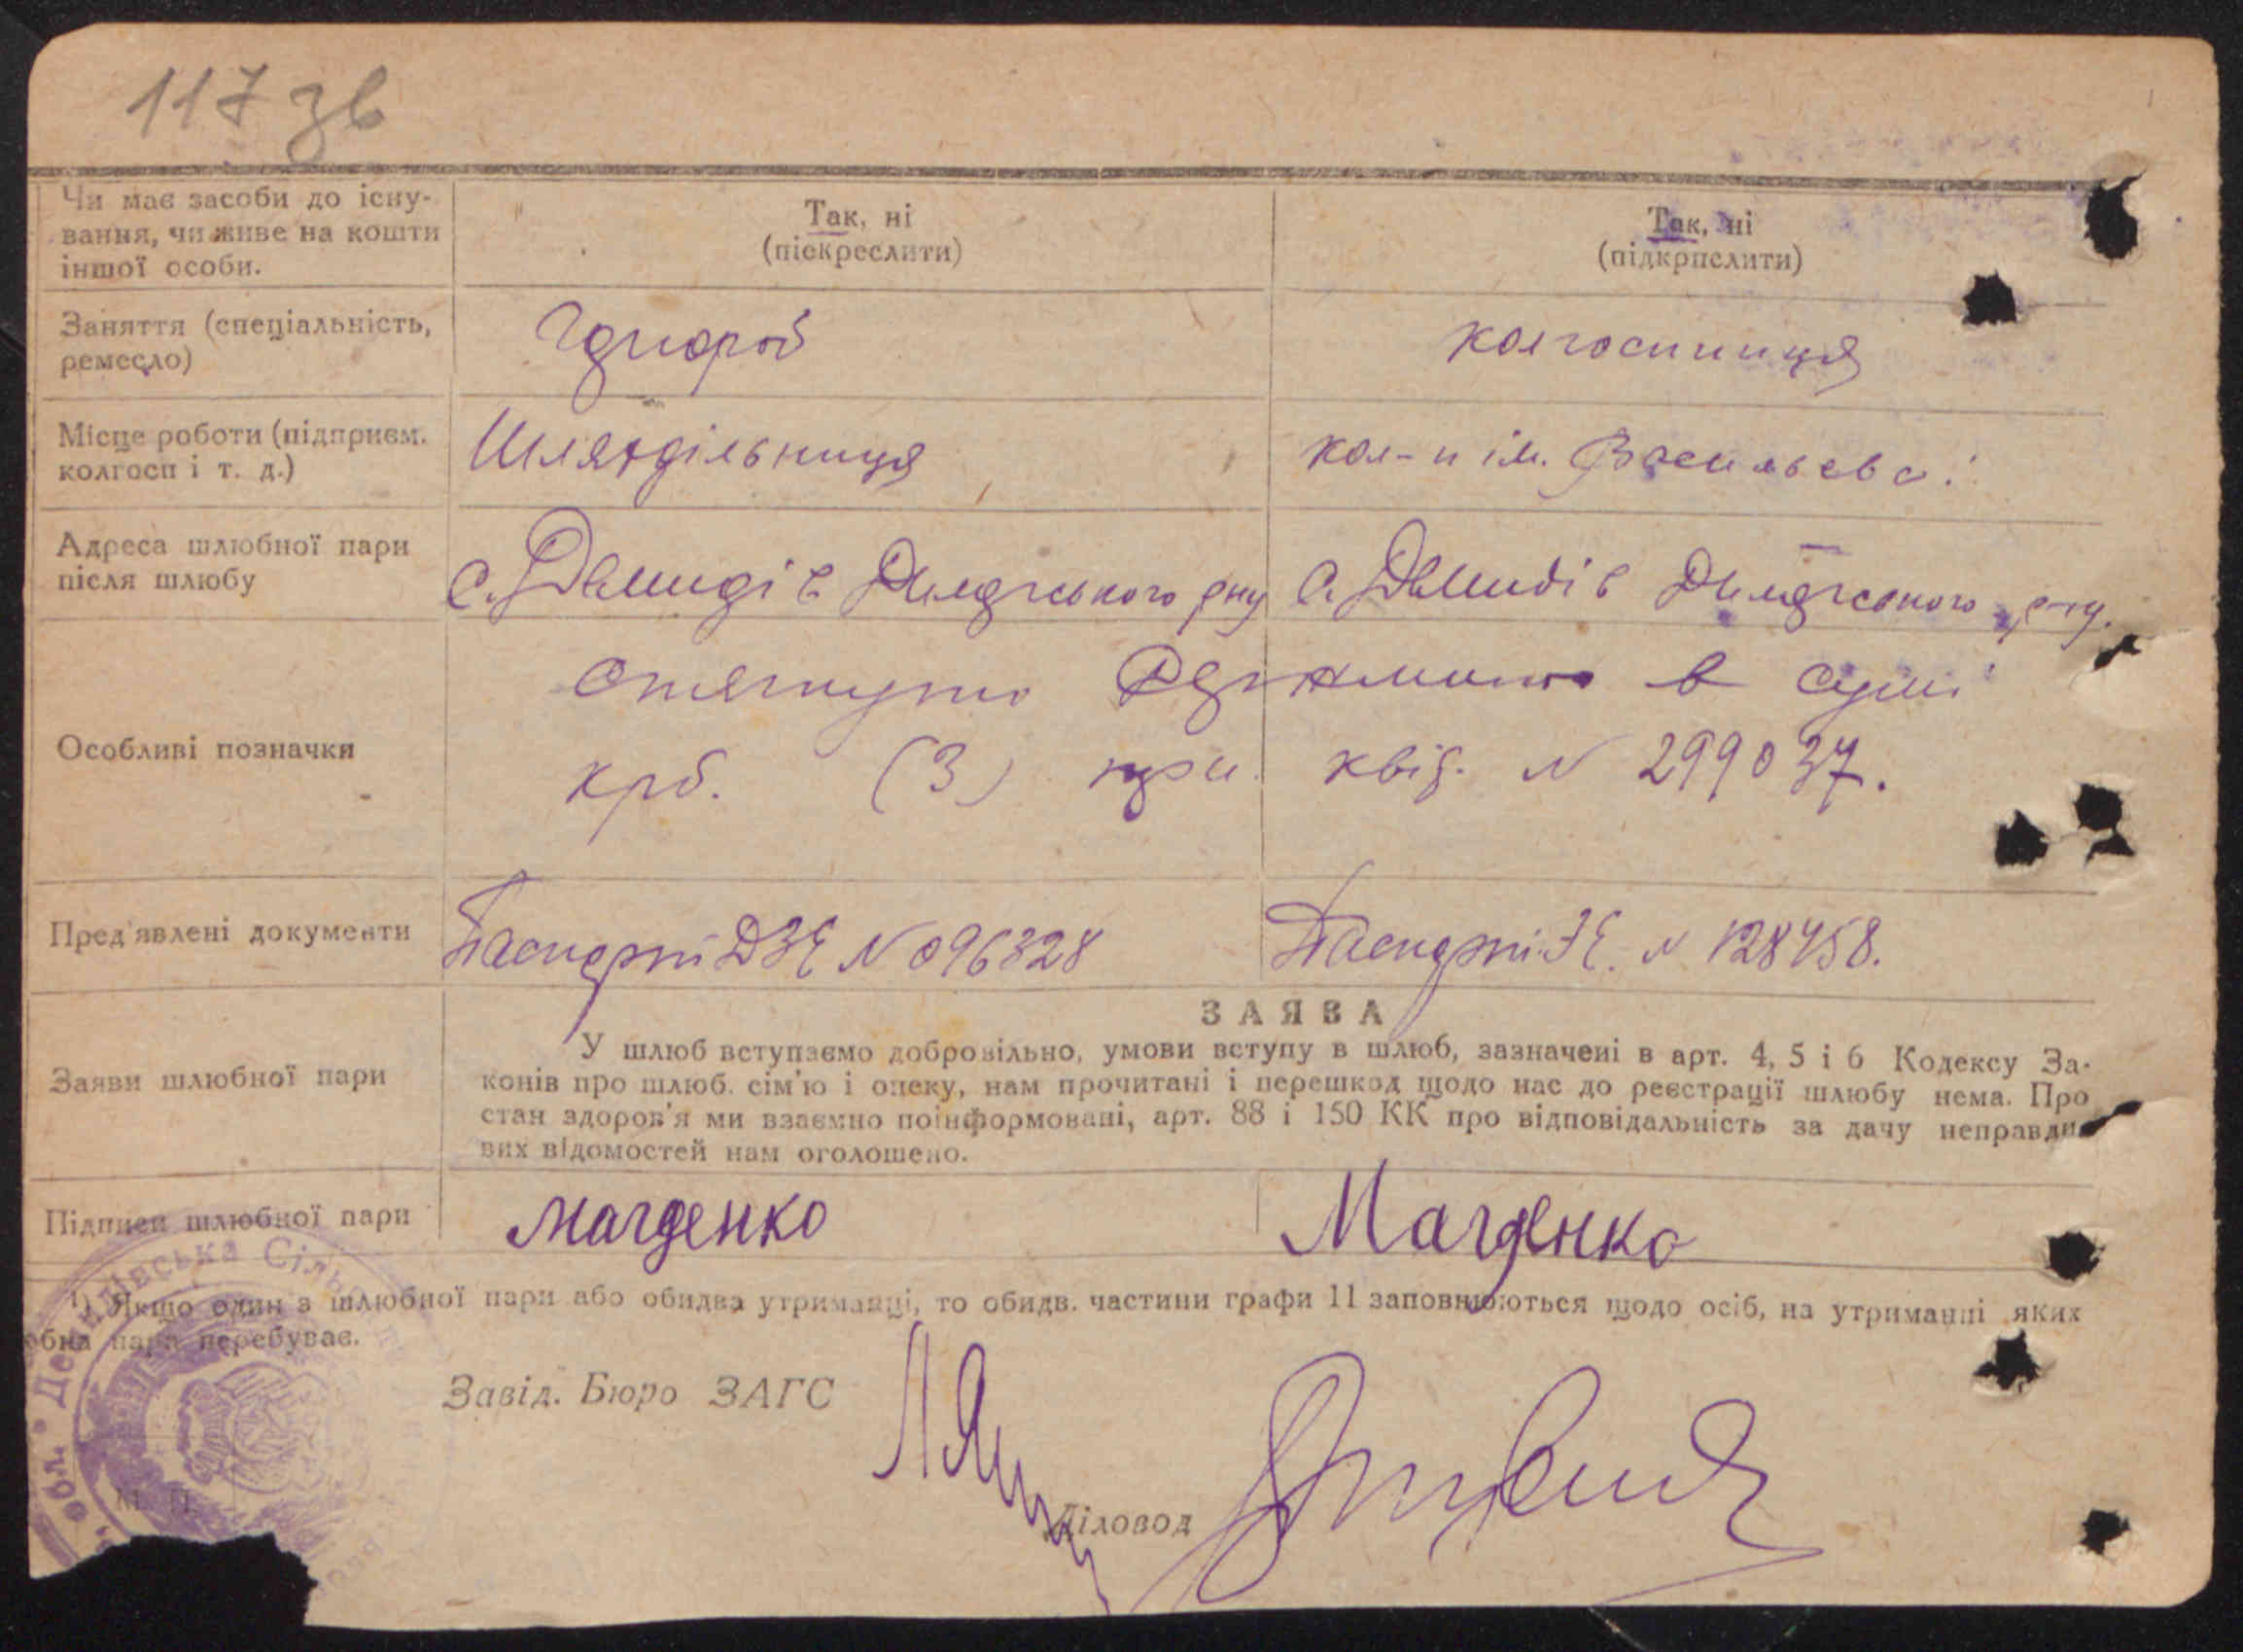 117 зв
Чи має засоби до існу-
вання, чи живе на кошти
іншої особи.
Так, ні
(піекреслити)
Так, ні
(підкрпслити)
Заняття (спеціальність,
ремесло)
колгоспниця
Місце роботи (підприєм.
колгосп і т. д.)
Шляхдільниця
кол-п ім. Васильєва.
Адреса шлюбної пари
після шлюбу
с. Демидів Димерського р-ну
с. Демидів Димерського р-ну.
Особливі позначки
Стягнуто в сумі
крб. (3) три. квіт. N 299037.
Пред'явлені документи
Паспорт ДЗЕ N 096328
Паспорт ЗЕ. N 128458.
Заяви шлюбної пари
ЗАЯВА
У шлюб вступаємо добровільно, умови вступу в шлюб, зазначені в арт. 4, 5 і 6 Кодексу За-
конів про шлюб. сім'ю і опеку, нам прочитані і перешкод щодо нас до реєстрації шлюбу нема. Про
стан здоров'я ми взаємно поінформовані, арт. 88 і 150 КК про відповідальність за дачу неправди-
вих відомостей нам оголошено.
Підписи шлюбної пари
Магденко
Магденко
¹) Якщо один з шлюбної пари або обидва утриманці, то обидв. частини графи 11 заповнюються щодо осіб, на утриманні яких
обна пара перебуває.
Завід. Бюро ЗАГС
Діловод
М. П.